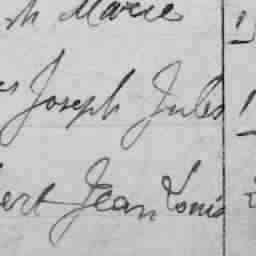 Marie
Joseph Jules
Jean Louis